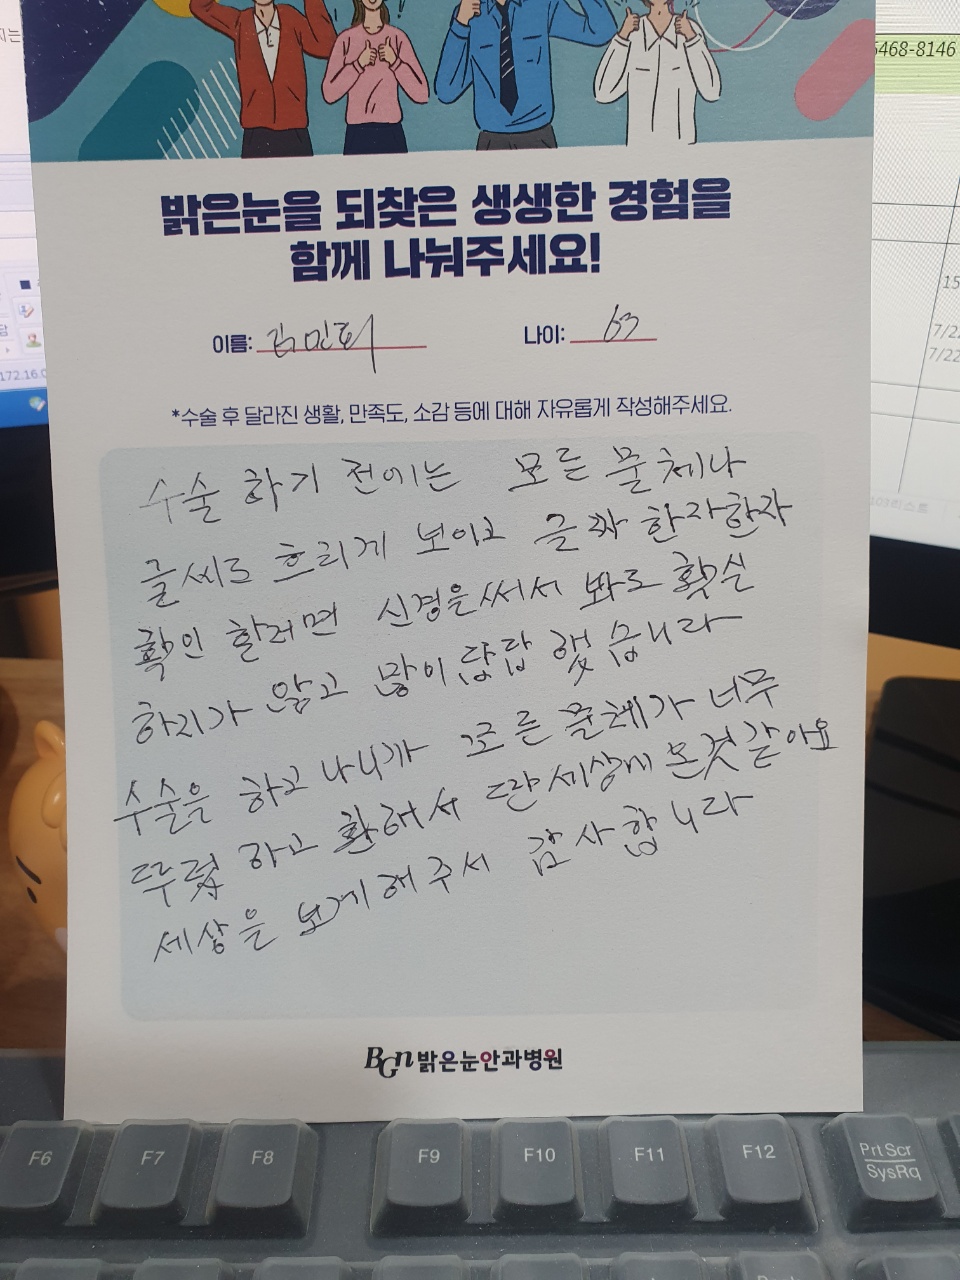 5468-8146
밝은눈을 되찾은 생생한 경험을
함께 나눠주세요!
이름: 김민희 나이: 63
*수술 후 달라진 생활, 만족도, 소감 등에 대해 자유롭게 작성해주세요.
수술 하기 전에는 모든 물체나
글씨도 흐리게 보이고 글짜 한자한자
확인 할려면 신경을써서 봐도 확실
하지가 않고 많이 답답 했습니다
수술을 하고 나니까 모든 물체가 너무
뚜렸 하고 환해서 딴세상에 온것 같아요
세상을 보게 해 주서 감사합니다
BGn 밝은눈안과병원
172.16.0
15
7/22
7/22
F6 F7 F8 F9 F10 F11 F12 PrtScr
SysRq